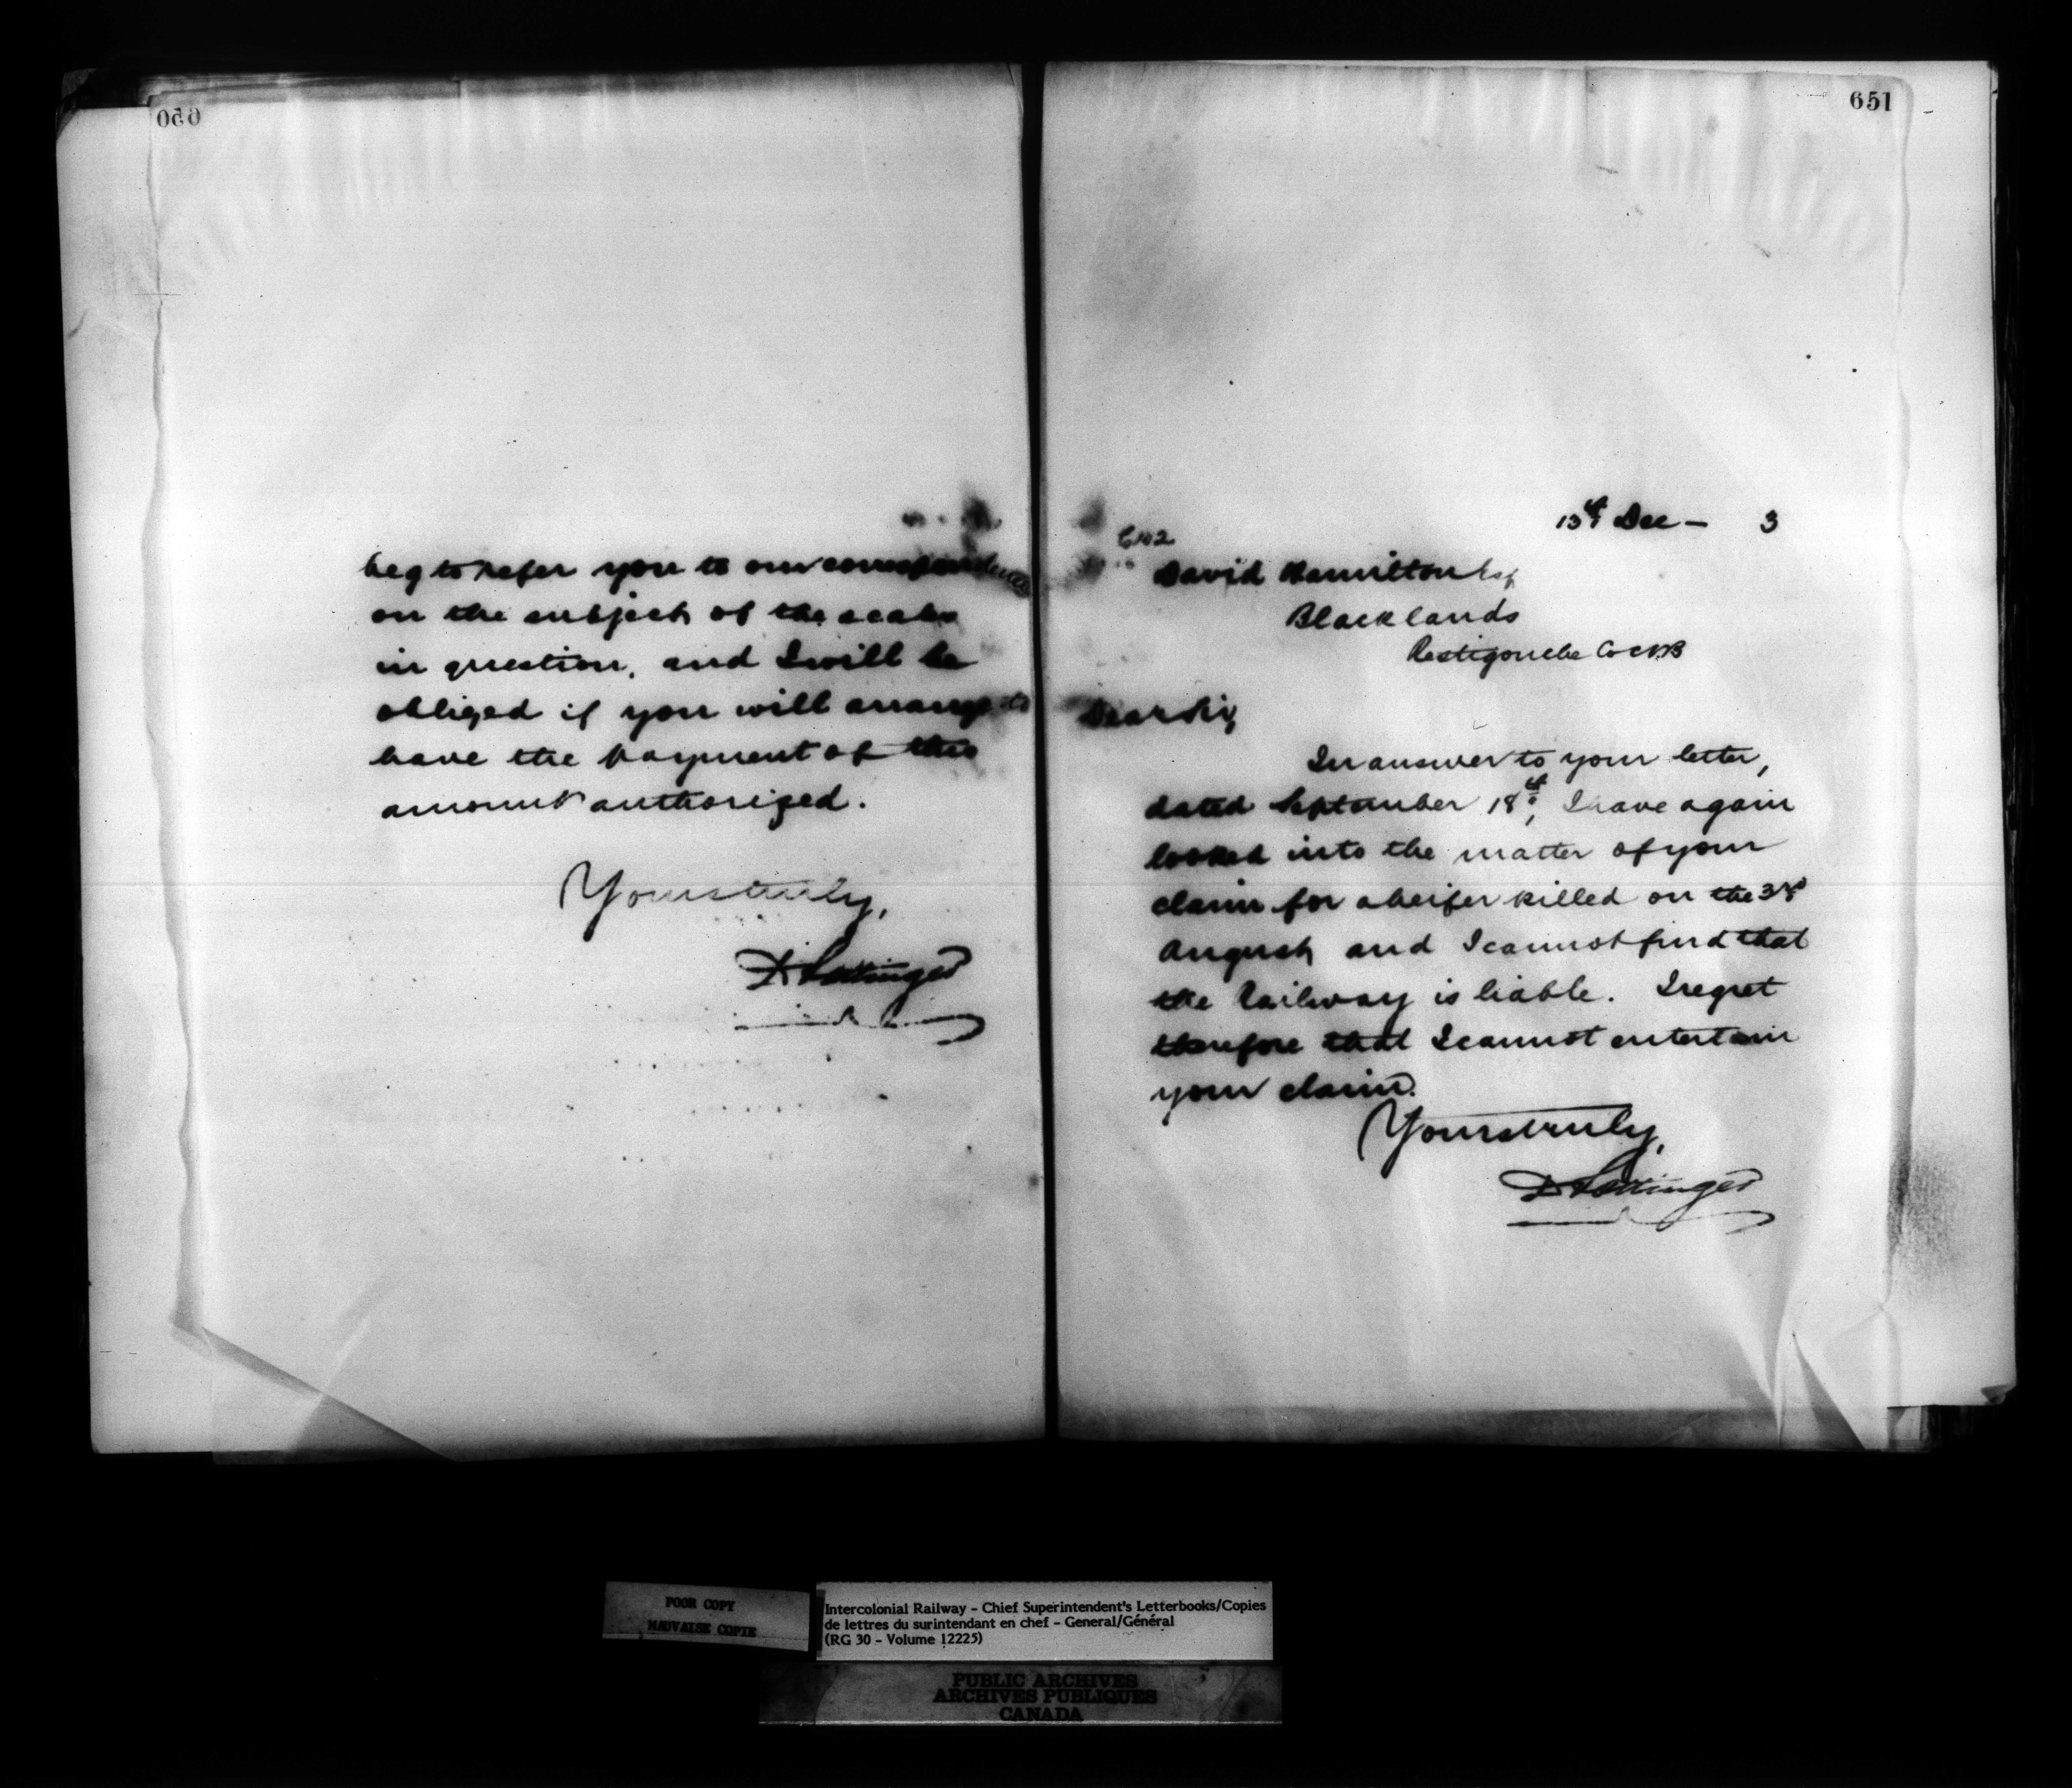 650
beg to refer you to our correspondence
on the subject of the scales
in question, and I will be
obliged if you will arrange to
have the payment of this
amount authorized.
Yours truly,
D Pottinger
651
13th Dec - 3
David Hamilton Esq
Blacklands
Restigouche Co NB
Dear Sir,
In answer to your letter,
dated September 18th, I have again
looked into the matter of your
claim for a heifer killed on the 3rd
August and I cannot find that
the Railway is liable. I regret
therefore that I cannot entertain
your claim.
Yours truly,
D Pottinger
POOR COPY
MAUVAISE COPIE
Intercolonial Railway - Chief Superintendent's Letterbooks/Copies
de lettres du surintendant en chef - General/Général
(RG 30 - Volume 12225)
PUBLIC ARCHIVES
ARCHIVES PUBLIQUES
CANADA